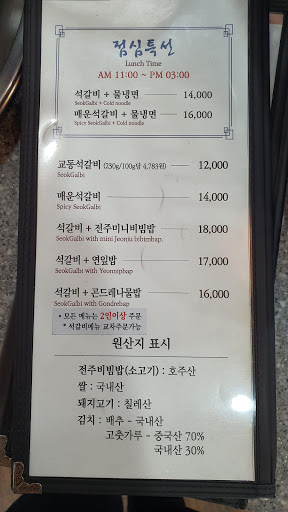 점심특선
Lunch Time
AM 11:00 ~ PM 03:00
석갈비 + 물냉면 14,000
SeokGalbi + Cold noodle
매운석갈비 + 물냉면 16,000
Spicy SeokGalbi + Cold noodle
교동석갈비 (230g/100g당 4,783원) 12,000
SeokGalbi
매운석갈비 14,000
Spicy SeokGalbi
석갈비 + 전주미니비빔밥 18,000
SeokGalbi with mini Jeonju bibimbap
석갈비 + 연잎밥 17,000
SeokGalbi with Yeonnipbap
석갈비 + 곤드레나물밥 16,000
SeokGalbi with Gondrebap
* 모든 메뉴는 2인이상 주문
* 석갈비메뉴 교차주문가능
원산지 표시
전주비빔밥(소고기) : 호주산
쌀 : 국내산
돼지고기 : 칠레산
김치 : 배추 - 국내산
고춧가루 - 중국산 70%
국내산 30%